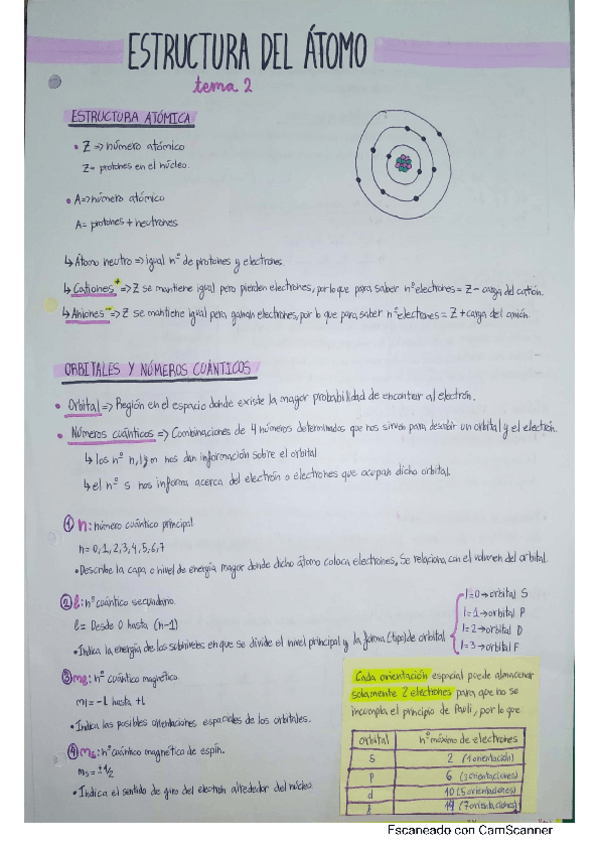 ESTRUCTURA DEL ÁTOMO
tema 2
ESTRUCTURA ATÓMICA
• Z => número atómico
Z= protones en el núcleo.
• A=>número atómico
A= protones + neutrones
↳ Átomo neutro => igual nº de protones y electrones.
↳ Cationes + => Z se mantiene igual pero pierden electrones, por lo que para saber nº electrones = Z - carga del catión.
↳ Aniones - => Z se mantiene igual pero ganan electrones, por lo que para saber nº electrones = Z + carga del anión.
ORBITALES Y NÚMEROS CUÁNTICOS
• Orbital => Región en el espacio donde existe la mayor probabilidad de encontrar al electrón.
• Números cuánticos => Combinaciones de 4 números determinados que nos sirven para describir un orbital y el electrón.
↳ los nº n, l y m nos dan información sobre el orbital
↳ el nº s nos informa acerca del electrón o electrones que ocupan dicho orbital.
① n: número cuántico principal
n= 0,1,2,3,4,5,6,7
• Describe la capa o nivel de energía mayor donde dicho átomo coloca electrones. Se relaciona con el volumen del orbital.
② l: nº cuántico secundario.
l= Desde 0 hasta (n-1)
• Indica la energía de los subniveles en que se divide el nivel principal y la forma (tipo) de orbital
l=0→orbital S
l=1→orbital P
l=2→orbital D
l=3→orbital F
③ ml: nº cuántico magnético.
ml = -l hasta +l
• Indica las posibles orientaciones espaciales de los orbitales.
④ ms: nº cuántico magnético de espín.
ms = ±1/2
• Indica el sentido de giro del electrón alrededor del núcleo.
Cada orientación espacial puede almacenar
solamente 2 electrones para que no se
incumpla el principio de Pauli, por lo que
orbital nº máximo de electrones
s 2 (1 orientación)
p 6 (3 orientaciones)
d 10 (5 orientaciones)
f 14 (7 orientaciones)
Escaneado con CamScanner